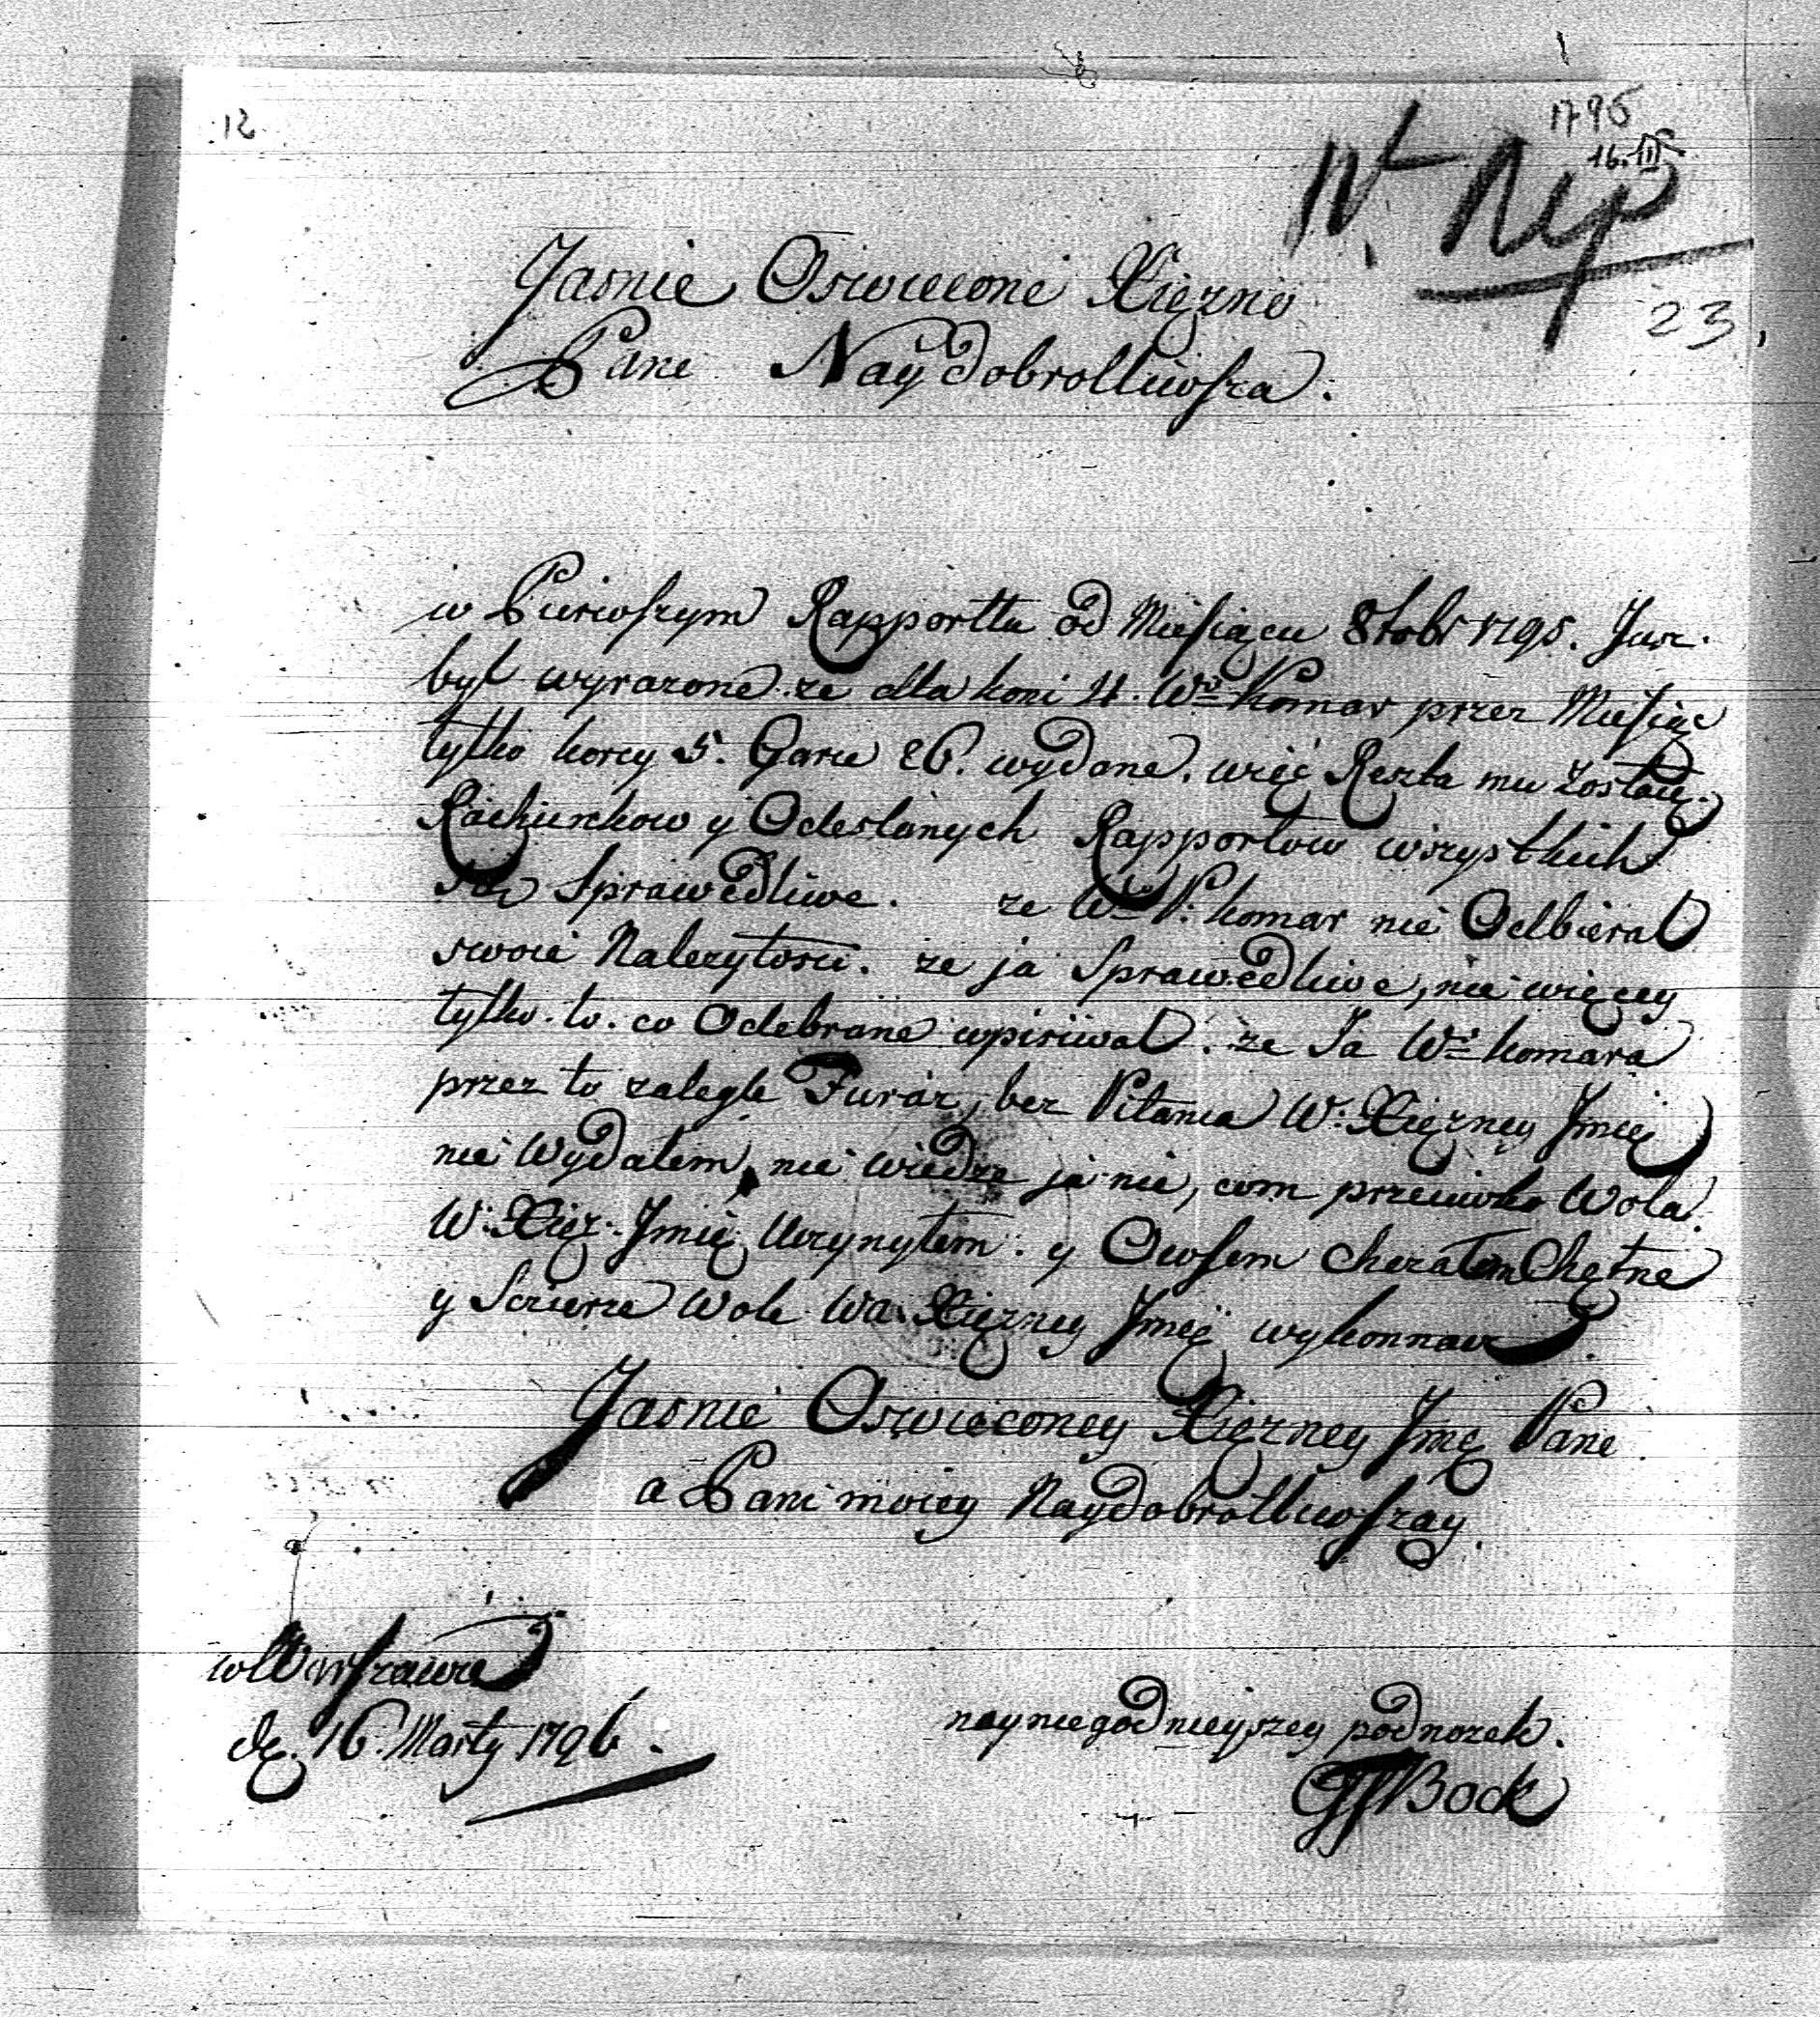 12
1796
16. III
Nt. Rep
23
Jasnie Oswiecone Xięzno
Pane Naydobrotliwsza.
w Pierwszym Rapporttu od Miesiącu 8tobr 1795. Juz.
był wyrazone ze dla koni 4. Wo Komar przez Miesiąc
tylko korcy 5. Garcu 26. wydane. więć Reszta mu zostaię.
Rachunkow y Odeslanych Rapportow wszystkich
są Sprawedliwe. ze Wo P: komar nie Odbieral
swoie Nalezytosci. ze ja Sprawedliwe, nie więcey
tylko. to. co Odebrane wpisiwal. ze Ja Wo komara
przez to zalegle Furaz, bez Pitania W: Xięzney Jmię
nie Wydalem, nie wiedze ja nie, com przeciwko Wola.
W: Xięz: Jmię Uczynylem. y Owsem chczalem Chętne
y Sczierze Wole Wa. Xięzney Jmię wykonnacz.
Jasnie Oswieconey Xięzney Jmę Pane
a Pani moiey Naydobrotliwszay.
w Warszawie
d. 16. Marty 1796.
nayniegodnieyszey podnozek.
Bock